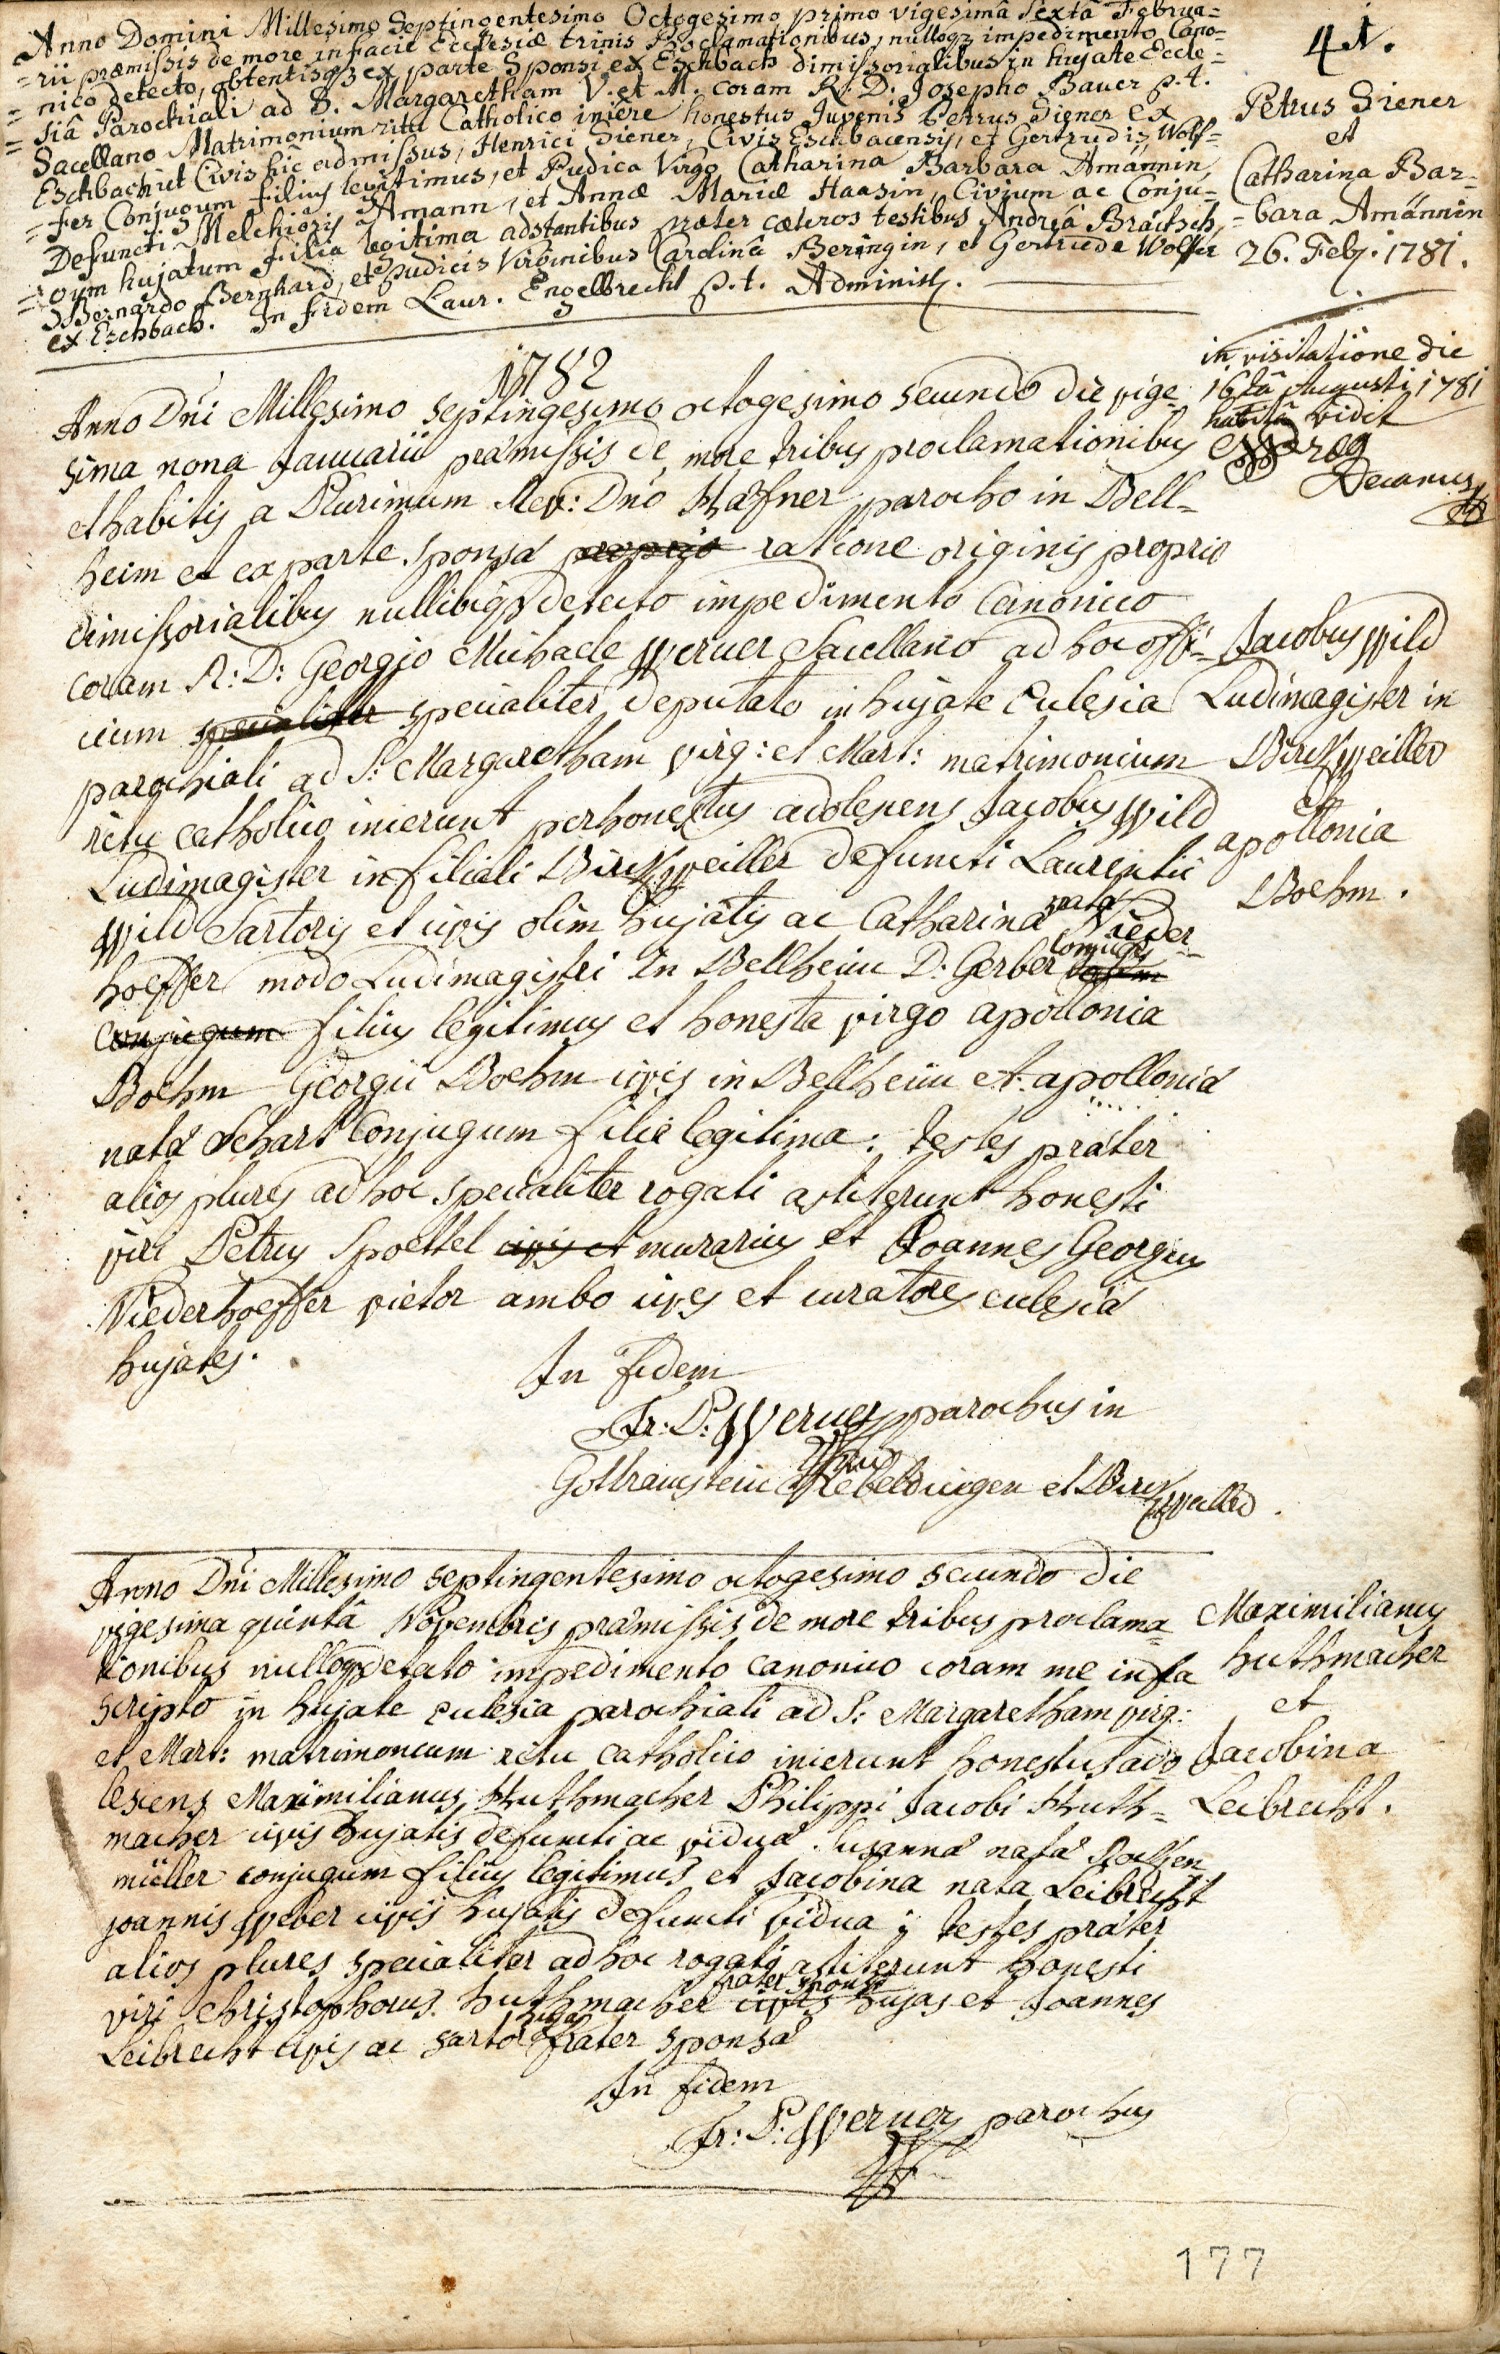 41.
Anno Domini Millesimo Septingentesimo Octogesimo primo vigesimâ Sextâ Februa=
=rii præmissis de more in facie Ecclesiæ trinis Proclamationibus, nulloq3 impedimento Cano=
=nico detecto, obtentisq3 ex parte Sponsi ex Eschbach dimissorialibus in hujate Eccle=
=siâ Parochiali ad S. Margaretham V. et M. coram R. D. Josepho Bauer p. t.
Sacellano Matrimonium ritu Catholico iniêre honestus Juvenis Petrus Siener ex
Eschbach ut Civis hic admissus, Henrici Siener, Civis Eschbacensis, et Gertrudis Wolf=
=fer Conjugum filius legitimus, et Pudica Virgo Catharina Barbara Amännin,
Defuncti Melchioris Amann, et Annæ Mariæ Haasin, Civium ac Conju=
=gum hujatum filia legitima adstantibus præter cæteros testibus Andreâ Bräitsch,
Bernardo Bernhard, et pudicis Virginibus Carolinâ Beringin, et Gertrude Wolfer
ex Eschbach. In fidem Laur. Engelbrecht p. t. Administ.
Petrus Siener
et
Catharina Bar=
=bara Amännin
26. Feb. 1781.
in visitatione die
16tâ Augusti 1781
habitâ vidit
Decanus
1782
Anno Dni Millesimo septingesimo octogesimo secundo die vige
sima nona Januarii præmissis de more tribus proclamationibus
et habitis a Plurimum Rev: Dno Hafner parocho in Bell=
heim et ex parte sponsæ proprio ratione originis proprio
dimissorialibus nullibiq3 detecto impedimento Canonico
coram R: D: Georgio Michaele Werner Sacellano ad hoc offi=
cium specialiter specialiter deputato in hujate Eclesia
parochiali ad S: Margaretham virg: et Mart: matrimonium
ritu catholico inierunt perhonestus adolesens Jacobus Wild
Ludimagister in filiali Birckweiller defuncti Laurentii
Wild Sartoris et civis olim hujatis ac Catharinæ natæ Nieder=
hoeffer modo Ludimagistri In Bellheim D. Gerber conjugis
conjugum filius legitimus et honesta virgo apollonia
Boehm Georgii Boehm civis in Bellheim et apolloniæ
natæ Schart Conjugum filie legitima: testes præter
alios plures ad hoc specialiter rogati astiterunt honesti
viri Petrus Spoettel civis et murarius et Joannes Georgius
Niederhoeffer vietor ambo cives et curatores eclesiæ
hujates.
In fidem
Fr: P: Werner parochus in
Gollramstein Rebeldingen et Birckweiller.
Jacobus Wild
Ludimagister in
Birckweiller
et
apollonia
Boehm.
Anno Dni Millesimo septingentesimo octogesimo secundo die
vigesima quintâ Novembris præmissis de more tribus proclama=
tionibus nulloq3 detecto impedimento canonico coram me infra
scripto in hujate eclesia parochiali ad S: Margaretham virg:
et Mart: matrimonium ritu catholico inierunt honestus ado
lesiens Maximilianus Huthmacher Philippi Jacobi Huth=
macher civis hujatis defuncti ac viduæ Susannæ natæ
müller conjugum filius legitimus et Jacobina nata Leibrecht
joannis Weber civis hujatis defuncti vidua; testes præter
alios plures specialiter ad hoc rogatis astiterunt honesti
viri christophorus huthmacher frater sponsi civis hujas et Joannes
Leibrecht civis ac sartor hujas frater sponsæ
In fidem
Fr: P: Werner parochus
Maximilianus
huthmacher
et
Jacobina
Leibrecht.
177